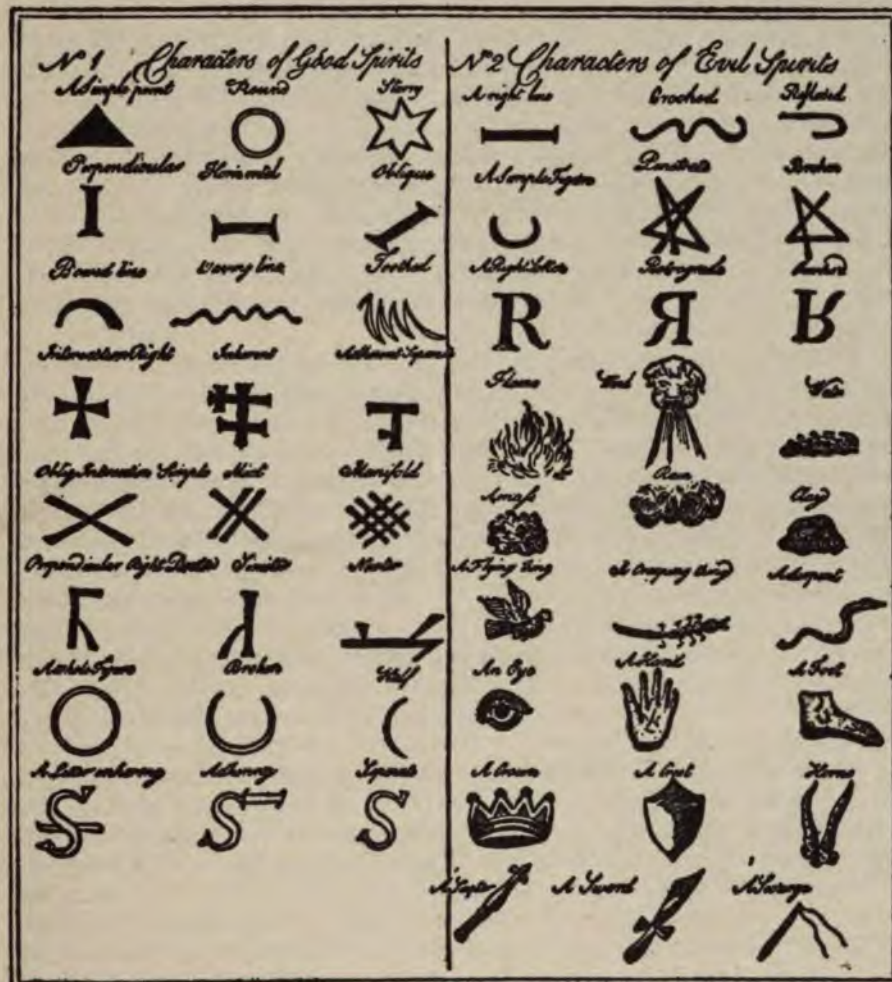 Nº 1 Characters of Good Spirits
A Simple point Round Starry
Perpendicular Horizontal Oblique
Bowed line Wavy line Toothed
Intersection Right Inherent Adherent Separate
Obliq Intersection Simple Mixt Manifold
Perpendicular Right Dexter Sinister Neuter
A whole Figure Broken Half
A Letter inhering Adhering Separate
Nº 2 Characters of Evil Spirits
A right line Crooked Reflexed
A Simple Figure Penetrate Broken
A Right Letter Retrograde
R R R
Flame Wind Water
A mass Rain Clay
A Flying thing A Creeping thing A Serpent
An Eye A Hand A Foot
A Crown A Crest Horns
A Scepter A Sword A Scourge